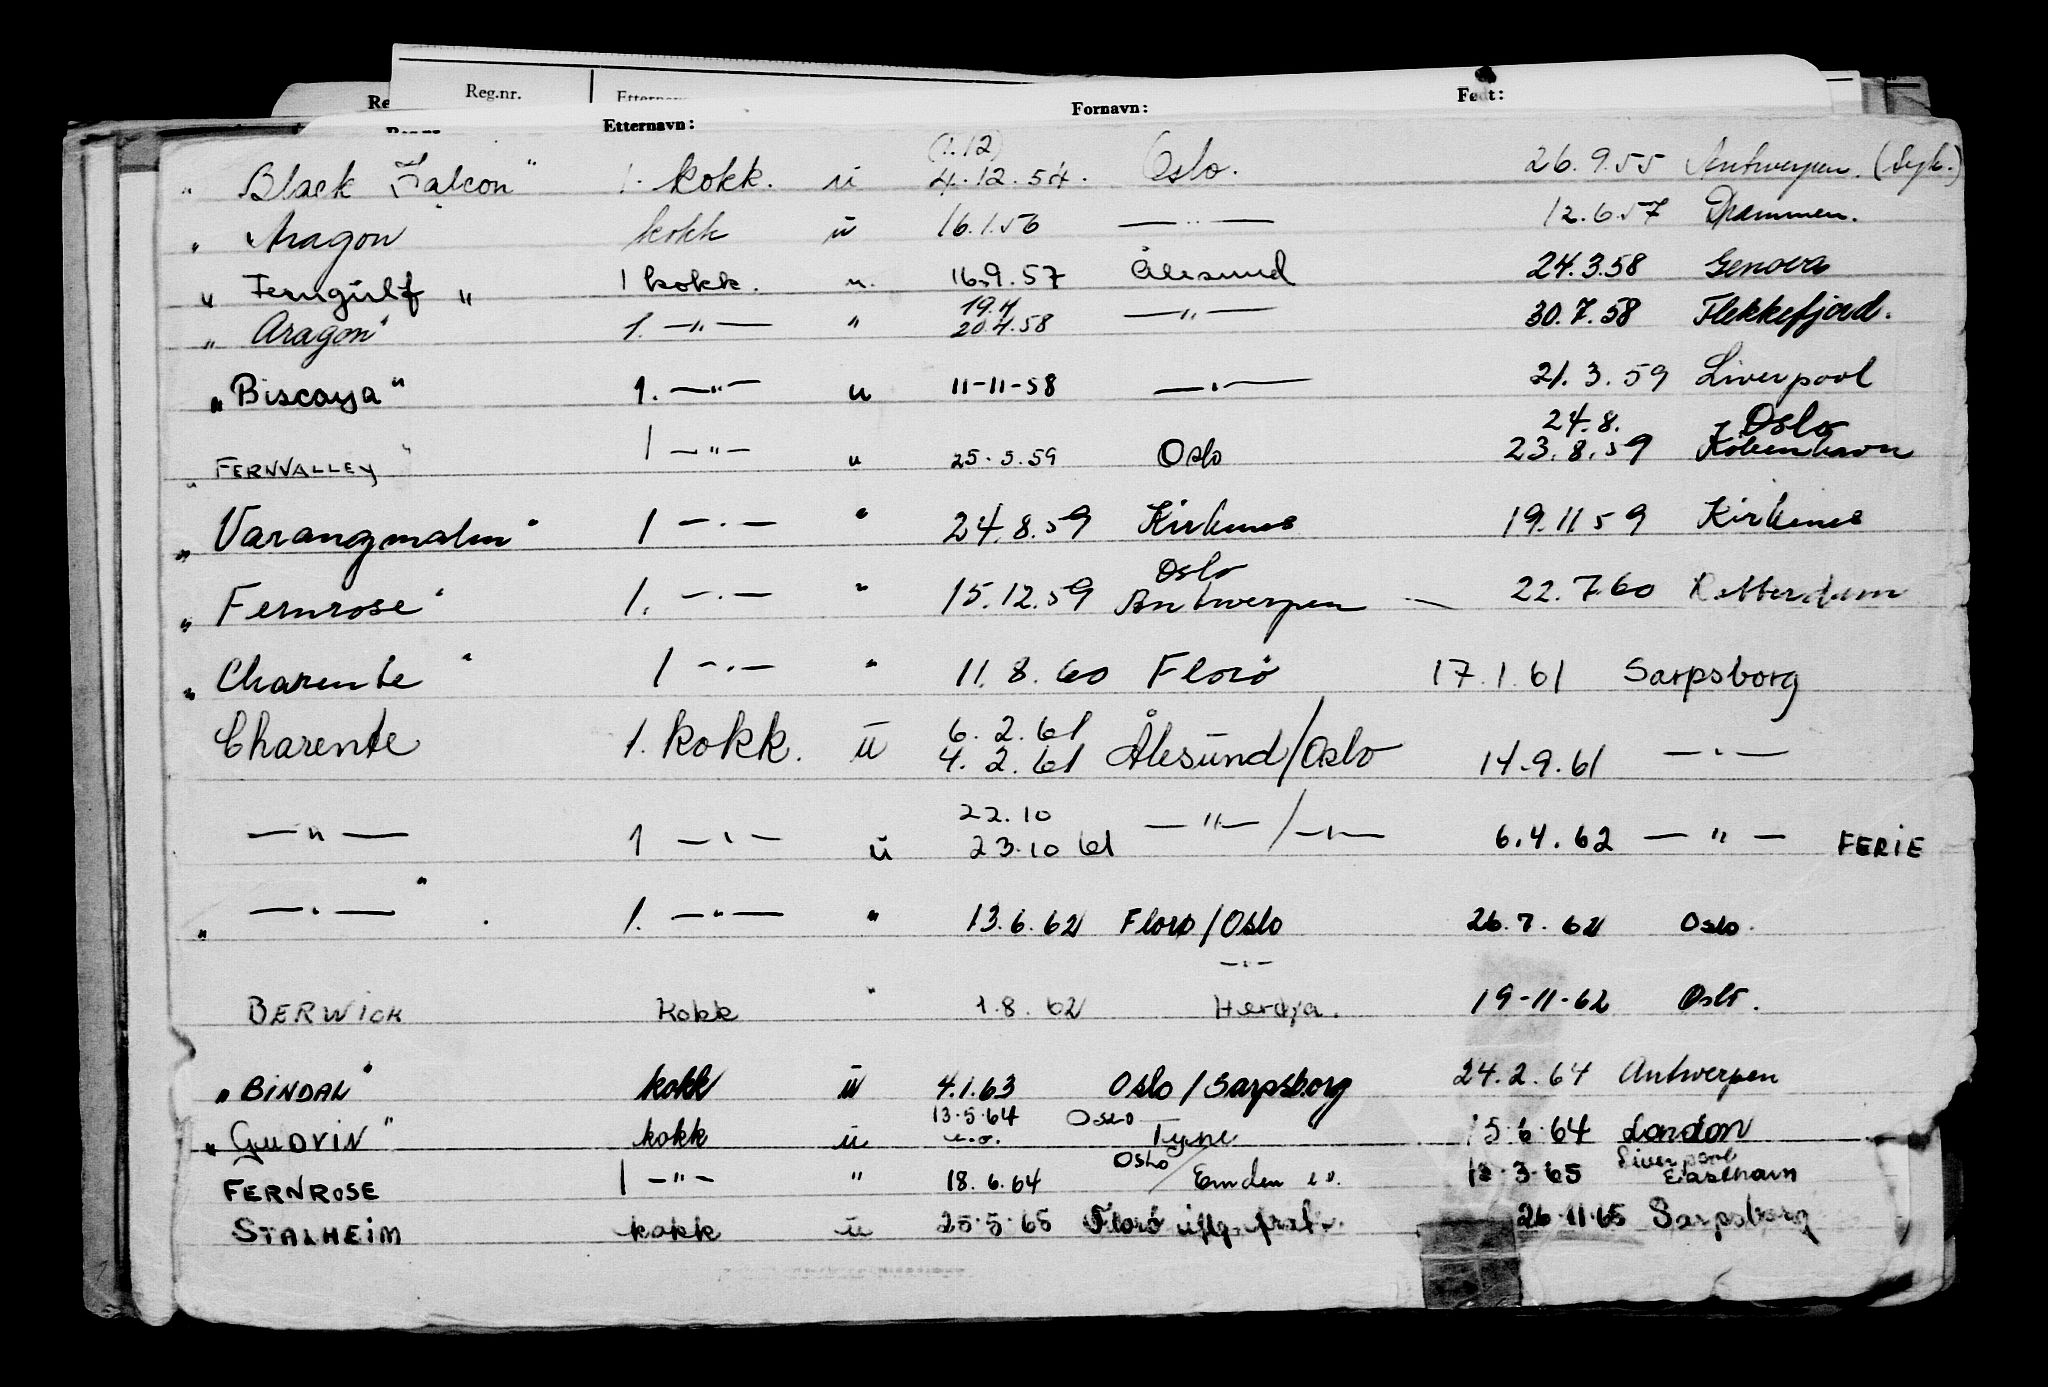 Reg.nr.
Fornavn:
Født:
Etternavn:
(1.12)
" Black Falcon" 1. kokk. u 4.12.54. Oslo. 26.9.55 Antwerpen. (syk.)
" Aragon kokk u 16.1.56 — " — 12.6.57 Drammen.
" Ferngulf " 1 kokk. u. 16.9.57 Ålesund 24.3.58 Genova
19.4
" Aragon" 1. — " — " 20.4.58 — " — 30.7.58 Flekkefjord.
"Biscaya" 1. — " — u 11-11-58 — " — 21.3.59 Liverpool
24.8. - Oslo
" FERNVALLEY " 1 — " — u 25.5.59 Oslo 23.8.59 København
" Varangmalm" 1 — " — " 24.8.59 Kirkenes 19.11 59 Kirkenes
Oslo
" Fernrose" 1. — " — " 15.12.59 Antwerpen — 22.7.60 Rotterdam
" Charente " 1 — " — " 11.8.60 Florø 17.1.61 Sarpsborg
6.2.61
Charente 1. kokk. u 4.2.61 Ålesund/Oslo 14.9.61 — " —
22.10
— " — 1 — " — u 23.10 61 — " — / — " — 6.4.62 — " — FERIE
" — " — " 1. — " — " 13.6.62 Florø/Oslo 26.7.62 Oslo.
— " —
BERWICK Kokk " 1.8.62 Herøya. 19-11-62 Oslo.
"BINDAL" kokk u 4.1.63 Oslo / Sarpsborg 24.2.64 Antwerpen
13.5.64 Oslo
"GUDVIN" kokk u Tyne 15.6.64 London
Oslo/ Liverpool
FERNROSE 1 — " — " 18.6.64 Emden 3.65 Eastham
STALHEIM kokk u 25.5.65 Florø 26.11.65 Sarpsborg